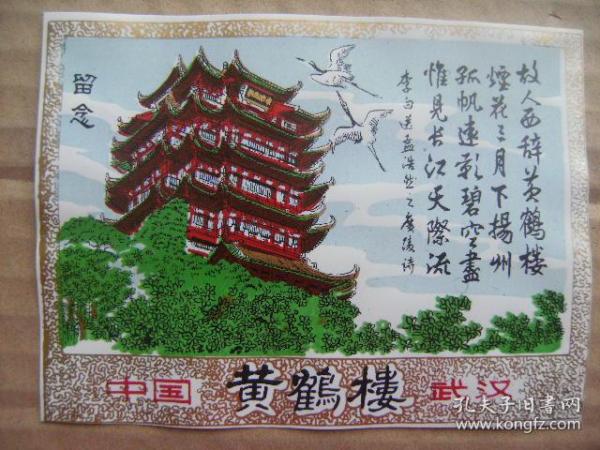 故人西辞黄鹤楼
煙花三月下揚州
孤帆遠影碧空盡
惟見长江天際流
李白送孟浩然之广陵诗
留念
中国 黄鶴楼 武汉
孔夫子旧书网
www.kongfz.com